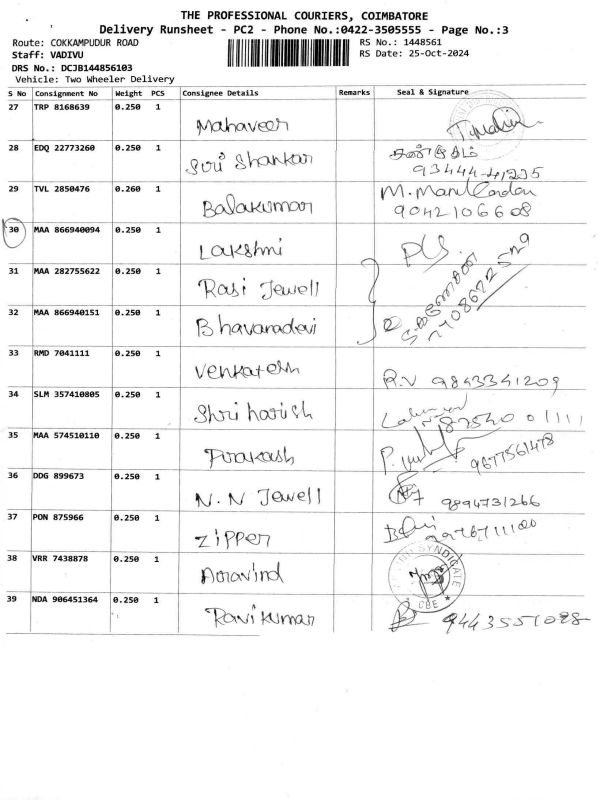 THE PROFESSIONAL COURIERS, COIMBATORE
Delivery Runsheet - PC2 - Phone No.:0422-3505555 - Page No.:3
Route: COKKAMPUDUR ROAD RS No.: 1448561
Staff: VADIVU RS Date: 25-Oct-2024
DRS No.: DCJB144856103
Vehicle: Two Wheeler Delivery
S No Consignment No Weight PCS Consignee Details Remarks Seal & Signature
27 TRP 8168639 0.250 1 Mahaveer
28 EDQ 22773260 0.250 1 Siri Shankar 93444-41235
29 TVL 2850476 0.260 1 Balakumar 9042106608
30 MAA 866940094 0.250 1 Lakshmi
31 MAA 282755622 0.250 1 Rasi Jewell
32 MAA 866940151 0.250 1 Bhavanadevi
33 RMD 7041111 0.250 1 Venkatesh R.V 9843341209
34 SLM 357410805 0.250 1 Shri harish
35 MAA 574510110 0.250 1 Prakash 9677561478
36 DDG 899673 0.250 1 N.N Jewell 9894731266
37 PON 875966 0.250 1 Zipper
38 VRR 7438878 0.250 1 Aravind SYNDICATE CBE
39 NDA 906451364 0.250 1 Ravi kumar 9443551088